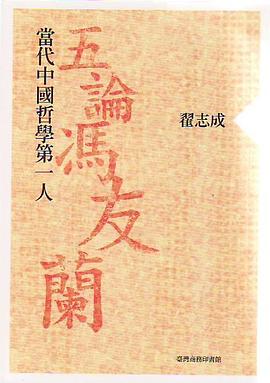 當代中國哲學第一人
五論馮友蘭
翟志成
臺灣商務印書館